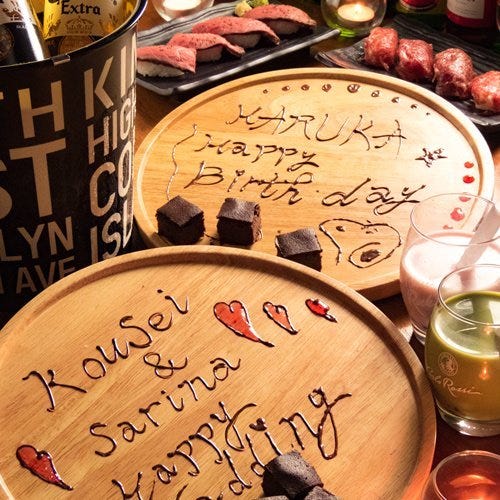 Extra
TH
ST
LYN
AVE
KI
HIG
CO
ISL
HARUKA
Happy
Birthday
Kousei
&
Sarina
Happy
Wedding
Carlo Rossi